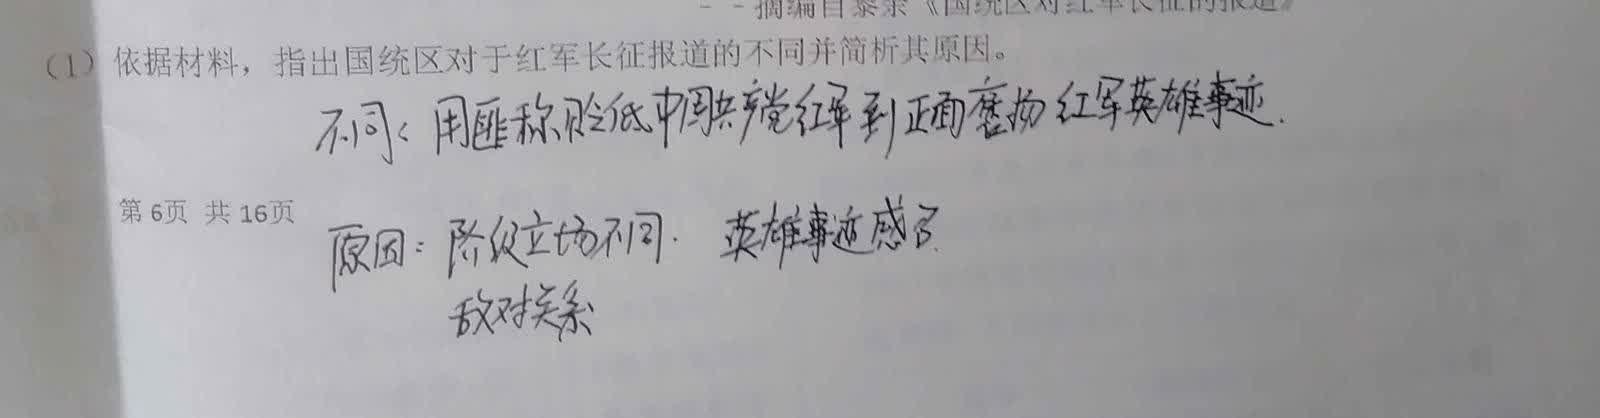 --摘编自黎余《国统区对红军长征的报道》
(1) 依据材料，指出国统区对于红军长征报道的不同并简析其原因。
不同: 用匪称贬低中国共产党红军到正面褒扬红军英雄事迹.
第 6页 共 16页
原因: 阶级立场不同. 英雄事迹感
敌对关系